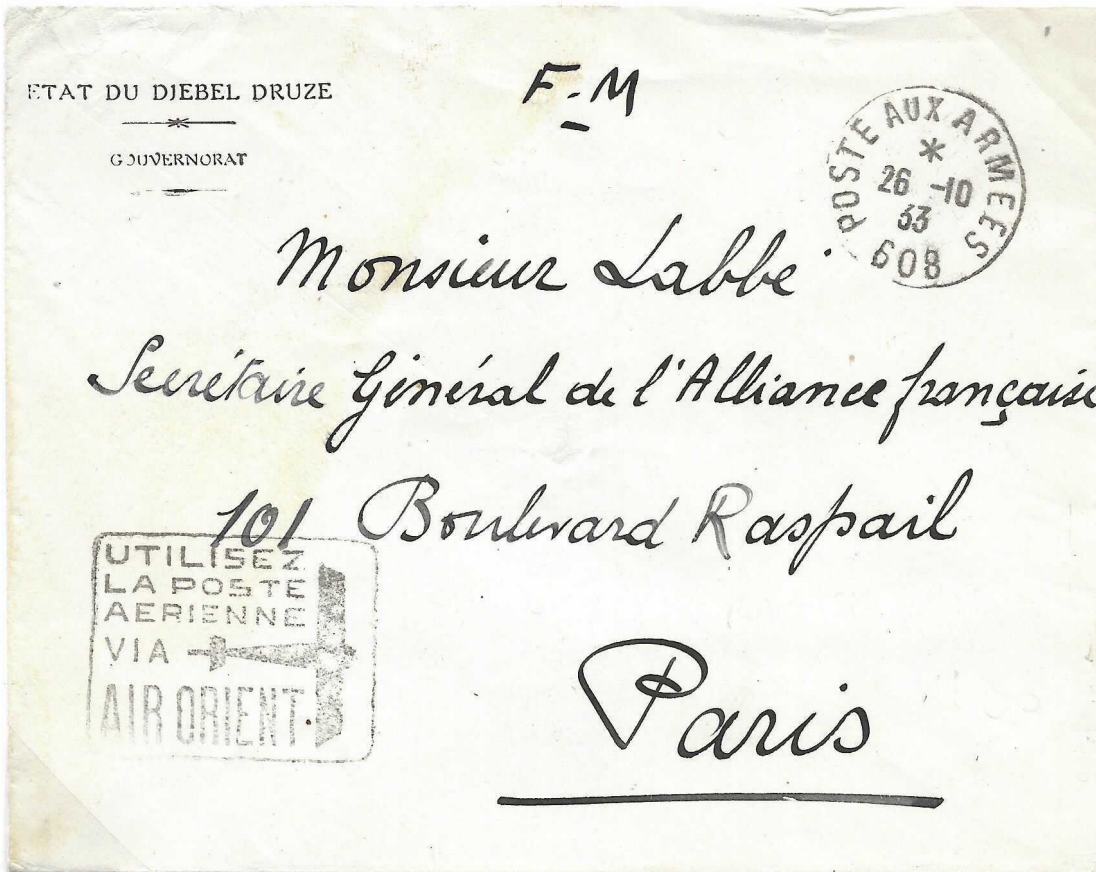 ETAT DU DJEBEL DRUZE
GOUVERNORAT
F-M
POSTE AUX ARMEES
26 -10
33
608
Monsieur Labbé
Secrétaire Général de l'Alliance française
101 Boulevard Raspail
Paris
UTILISEZ
LA POSTE
AERIENNE
VIA
AIR ORIENT